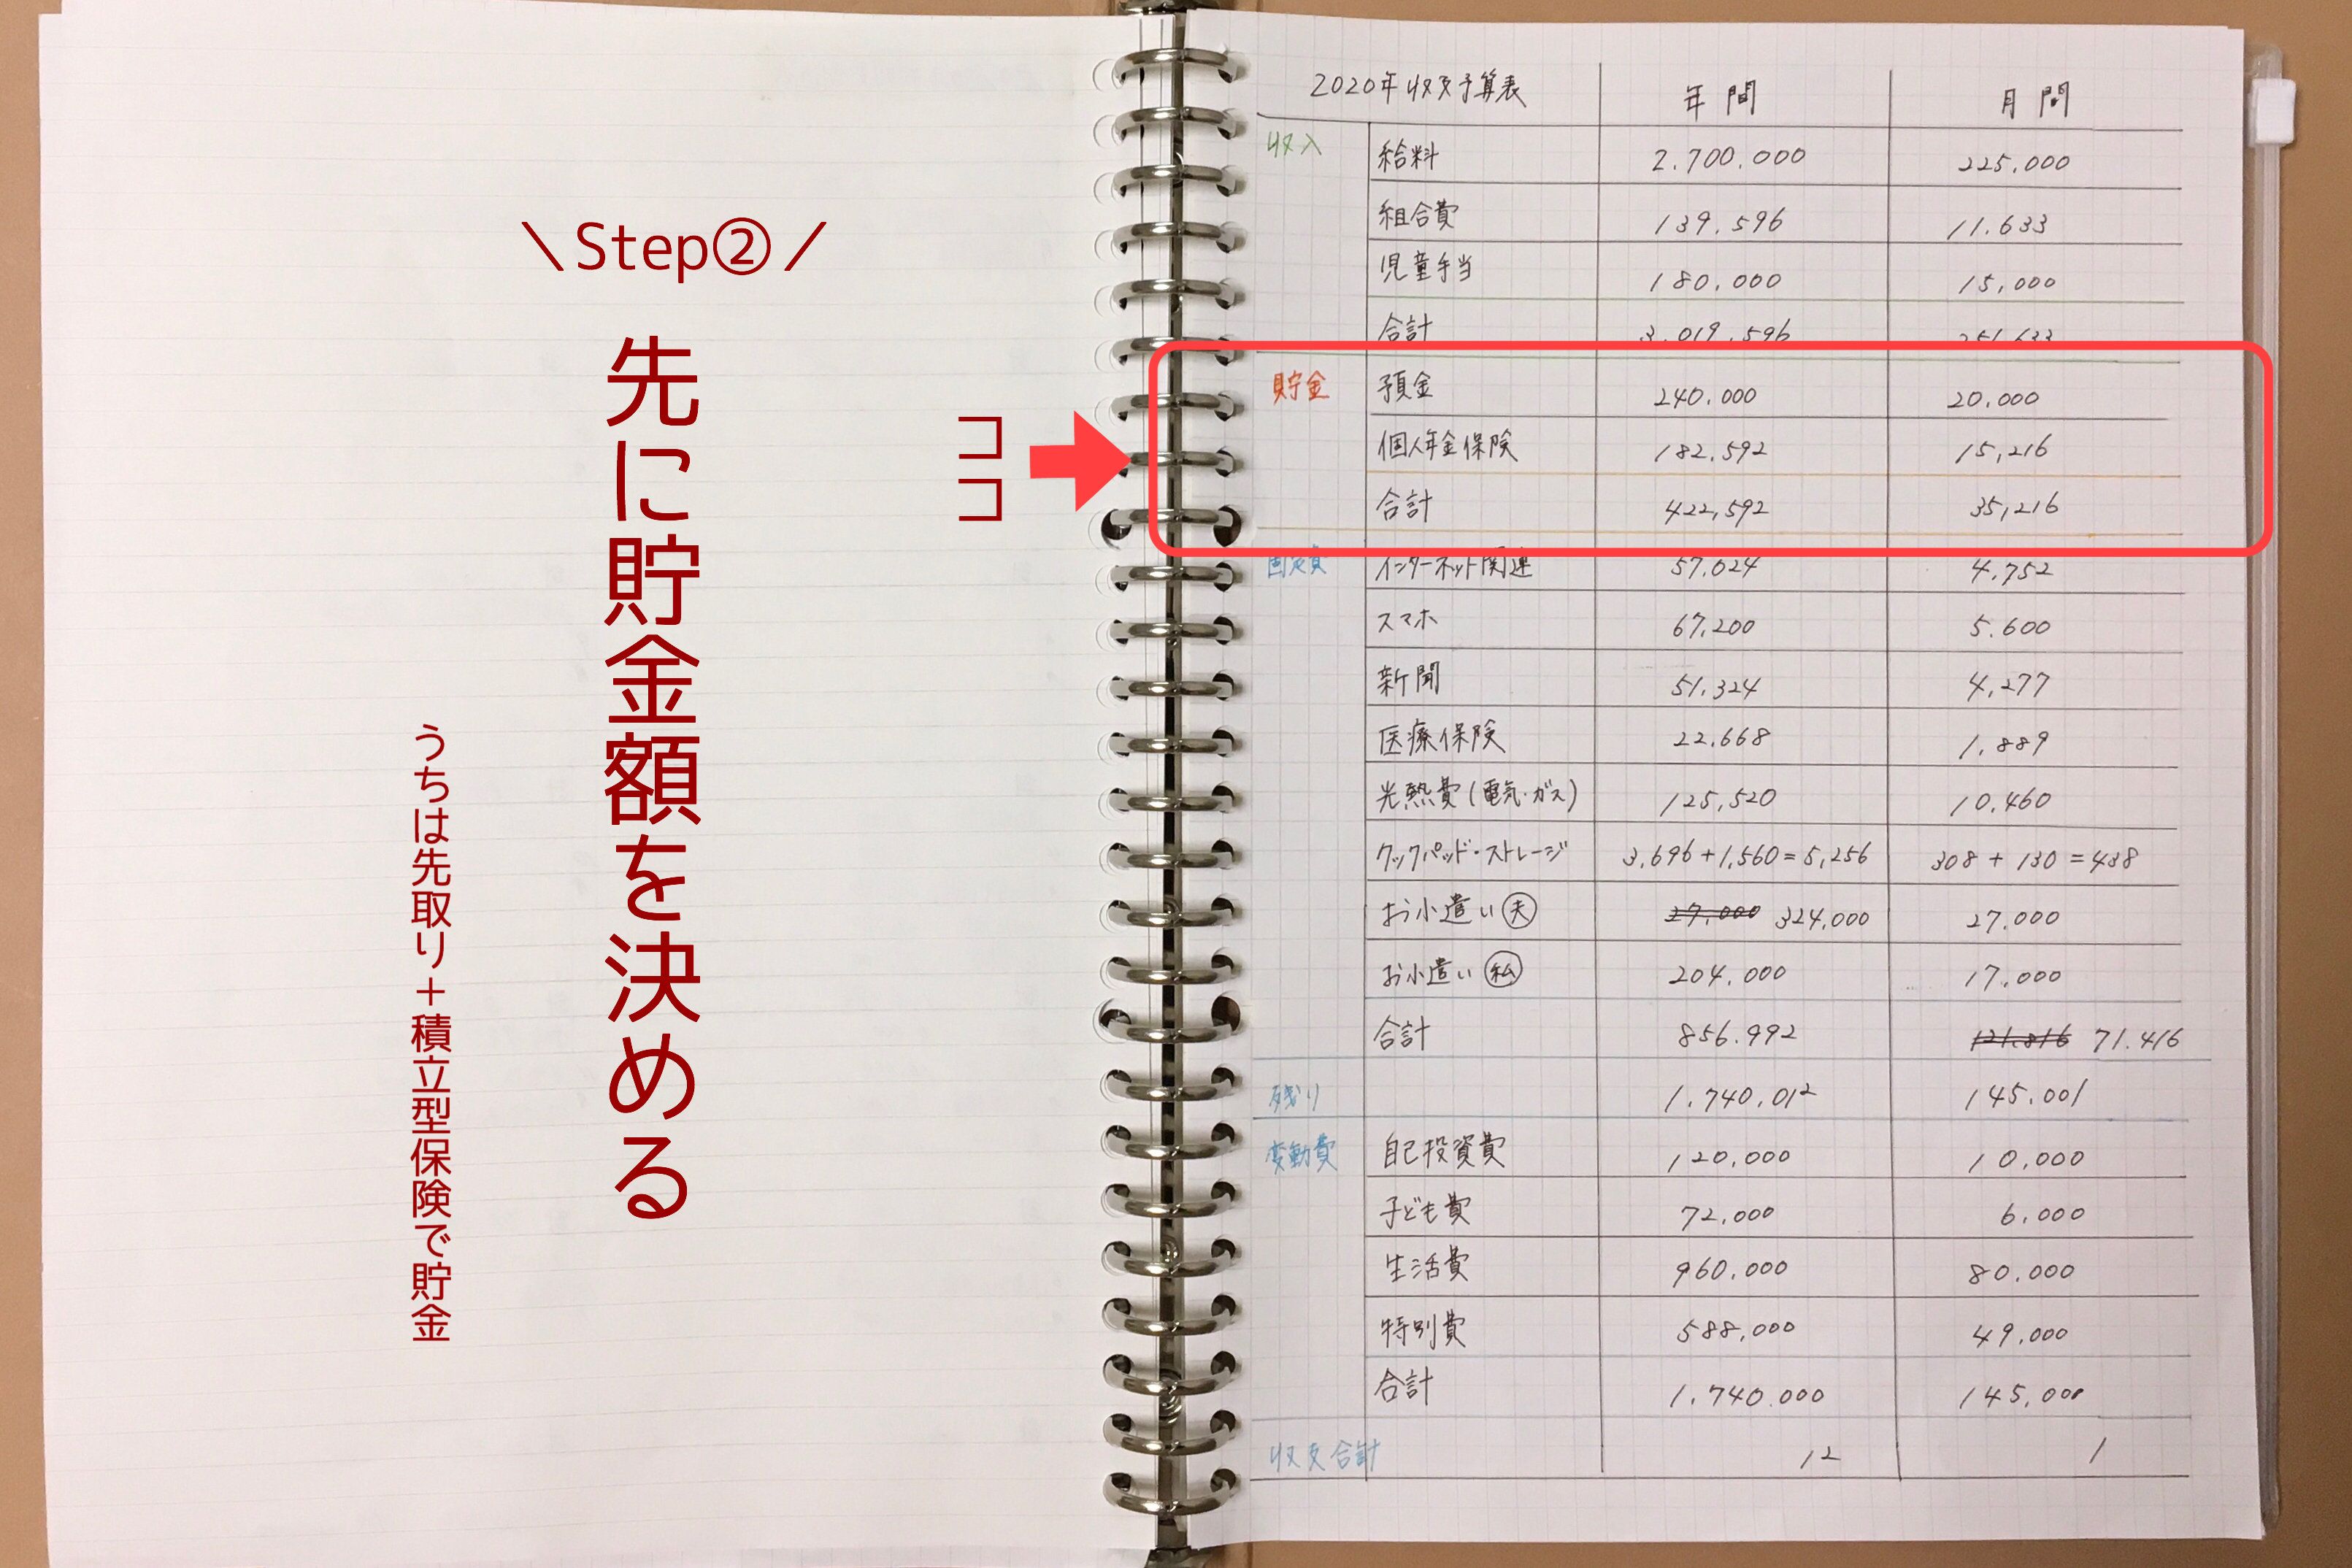 \Step②/
先に貯金額を決める
うちは先取り＋積立型保険で貯金
ココ
2020年収支予算表 年間 月間
収入 給料 2.700.000 225.000
組合費 139.596 11.633
児童手当 180.000 15,000
合計 3.019.596 251.633
貯金 預金 240.000 20.000
個人年金保険 182.592 15,216
合計 422,592 35,216
固定費 インターネット関連 57.024 4.752
スマホ 67,200 5.600
新聞 51.324 4,277
医療保険 22.668 1.889
光熱費(電気・ガス) 125,520 10.460
クックパッド・ストレージ 3,696+1,560=5,256 308+130=438
お小遣い夫 27,000 324,000 27.000
お小遣い私 204.000 17.000
合計 856.992 121.816 71.416
残り 1.740.012 145.001
変動費 自己投資費 120,000 10,000
子ども費 72,000 6,000
生活費 960,000 80,000
特別費 588,000 49,000
合計 1.740.000 145,000
収支合計 12 1